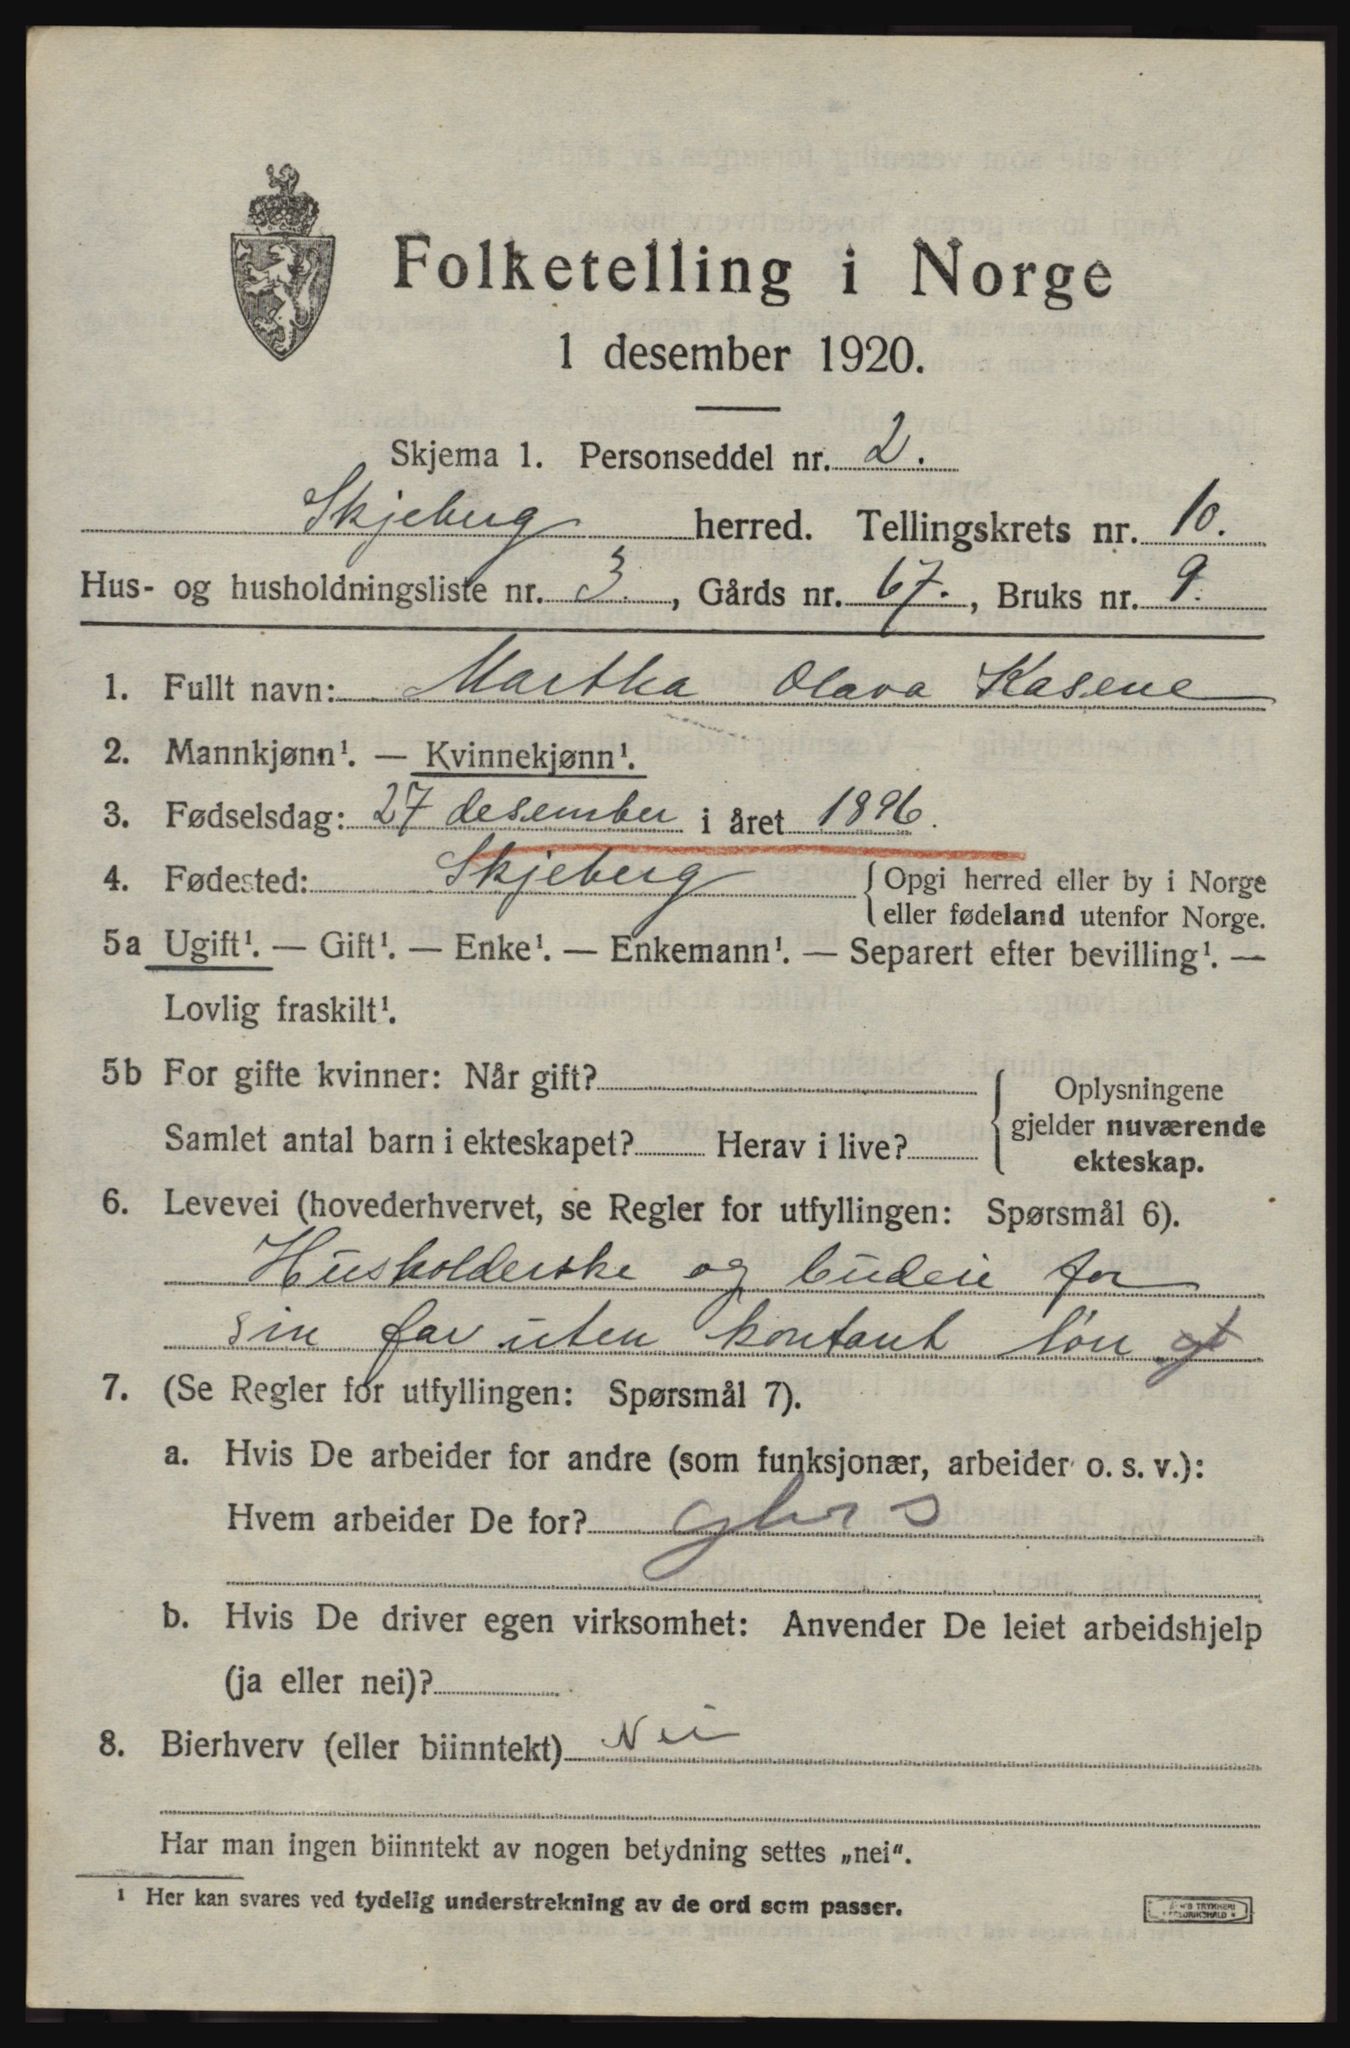 Folketelling i Norge
1 desember 1920.
Skjema 1. Personseddel nr. 2.
Skjeberg herred. Tellingskrets nr. 10.
Hus- og husholdningsliste nr. 3., Gårds nr. 67., Bruks nr. 9.
1. Fullt navn: Martha Olava Kasene
2. Mannkjønn¹. — Kvinnekjønn¹.
3. Fødselsdag: 27 desember i året 1896.
4. Fødested: Skjeberg { Opgi herred eller by i Norge
eller fødeland utenfor Norge.
5a Ugift¹. — Gift¹. — Enke¹. — Enkemann¹. — Separert efter bevilling¹. —
Lovlig fraskilt¹.
5b For gifte kvinner: Når gift?
Samlet antal barn i ekteskapet? Herav i live?
Oplysningene
gjelder nuværende
ekteskap.
6. Levevei (hovederhvervet, se Regler for utfyllingen: Spørsmål 6).
Husholderske og budeie for
sin far uten kontant løn gt
7. (Se Regler for utfyllingen: Spørsmål 7).
a. Hvis De arbeider for andre (som funksjonær, arbeider o. s. v.):
Hvem arbeider De for?
b. Hvis De driver egen virksomhet: Anvender De leiet arbeidshjelp
(ja eller nei)?
8. Bierhverv (eller biinntekt) Nei
Har man ingen biinntekt av nogen betydning settes „nei“.
¹ Her kan svares ved tydelig understrekning av de ord som passer.
TRYKKERI